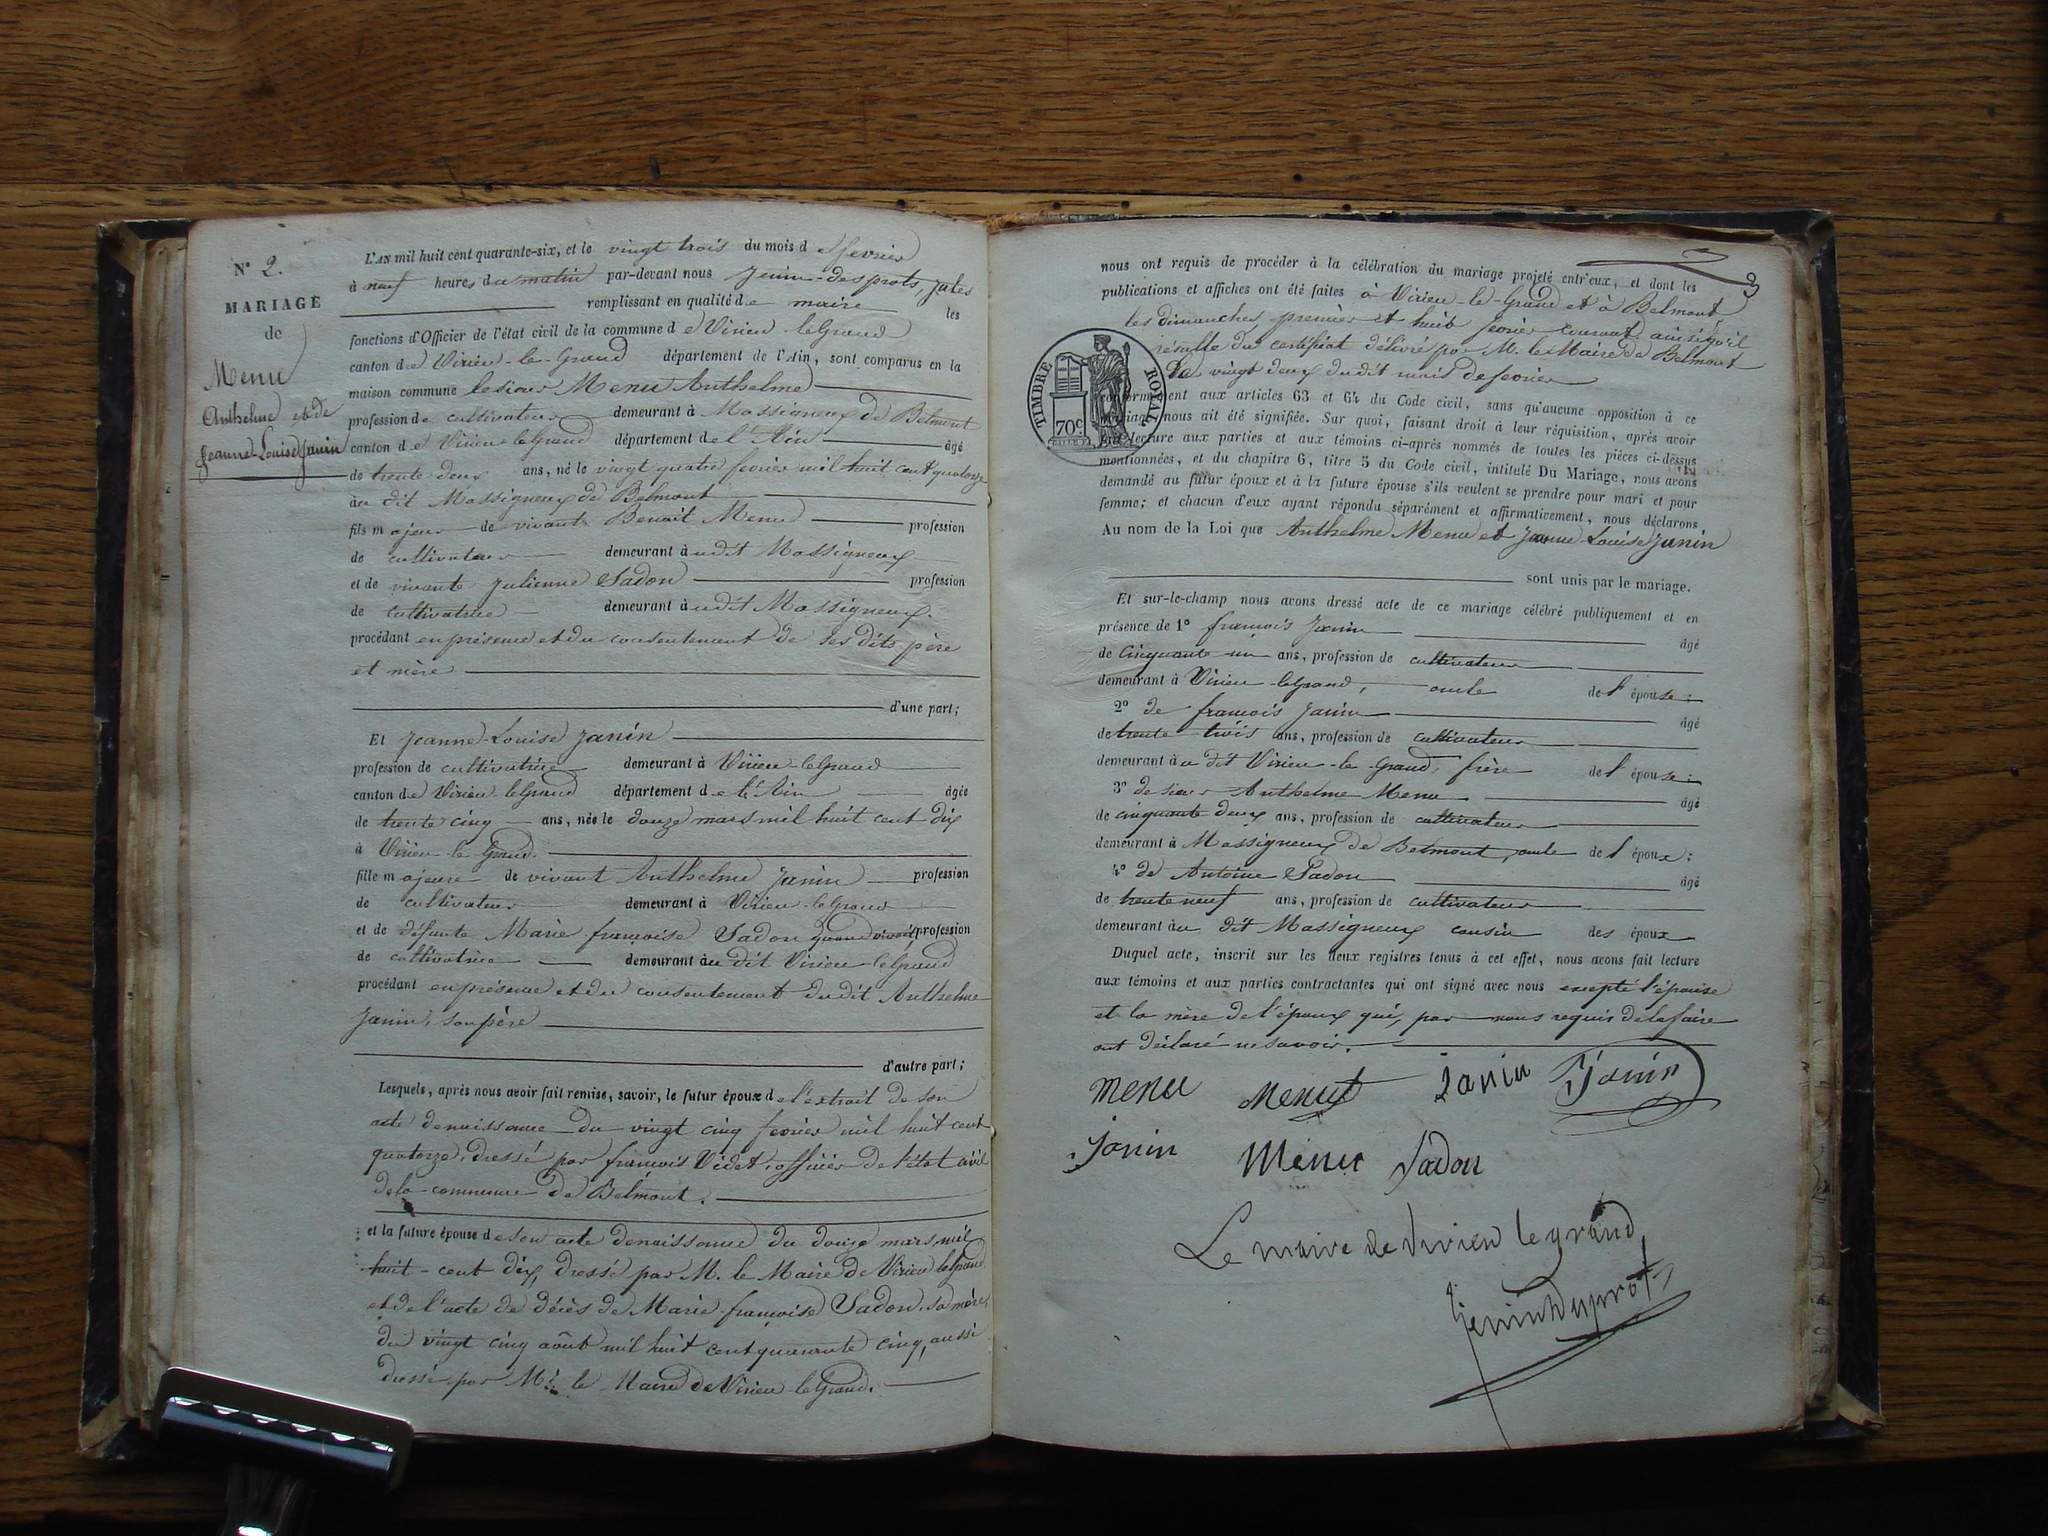 N° 2.
MARIAGE
de
Menu
Anthelme et de
Jeanne-Louise Janin
L'AN mil huit cent quarante-six, et le vingt trois du mois de fevrier
à neuf heures du matin par-devant nous Jenin-desprots, Jules
remplissant en qualité de maire les
fonctions d'Officier de l'état civil de la commune de Virieu-le Grand
canton de Virieu-le-Grand département de l'Ain, sont comparus en la
maison commune le sieur Menu Anthelme
profession de cultivateur demeurant à Massigneux de Belmont
canton de Virieu-le Grand département de l'Ain âgé
de trente deux ans, né le vingt quatre fevrier mil huit cent quatorze
au dit Massigneux de Belmont
fils majeur de vivant Benoit Menu profession
de cultivateur demeurant audit Massigneux
et de vivante Julienne Sadon profession
de cultivatrice demeurant audit Massigneux.
procédant en présence et du consentement de ses dits père
et mère
d'une part;
Et Jeanne-Louise Janin
profession de cultivatrice demeurant à Virieu-le Grand
canton de Virieu-le Grand département de l'Ain âgée
de trente cinq ans, née le douze mars mil huit cent dix
à Virieu-le Grand.
fille majeure de vivant Anthelme Janin profession
de cultivateur demeurant à Virieu-le Grand
et de défunte Marie françoise Sadon quand vivait profession
de cultivatrice demeurant au dit Virieu-le Grand
procédant en présence et du consentement dudit Anthelme
Janin, son père
d'autre part;
Lesquels, après nous avoir fait remise, savoir, le futur époux de l'extrait de son
acte de naissance du vingt cinq fevrier mil huit cent
quatorze, dressé par françois Videt, officier de l'état civil
de la commune de Belmont.
et la future épouse de son acte de naissance du douze mars mil
huit-cent dix, dressé par M. le Maire de Virieu le Grand
et de l'acte de décès de Marie-françoise Sadon, sa mère,
du vingt cinq août mil huit cent quarante cinq, aussi
dressé par Mr. le Maire de Virieu-le Grand.
3
nous ont requis de procéder à la célébration du mariage projeté entr'eux, et dont les
publications et affiches ont été faites à Virieu-le-Grand et à Belmont
les dimanches premier et huit fevrier courant ainsi qu'il
résulte du certificat délivré par M. le Maire de Belmont
le vingt deux dudit mois de fevrier
TIMBRE ROYAL
70c
conformément aux articles 63 et 64 du Code civil, sans qu'aucune opposition à ce
mariage nous ait été signifiée. Sur quoi, faisant droit à leur réquisition, après avoir
lecture aux parties et aux témoins ci-après nommés de toutes les pièces ci-dessus
mentionnées, et du chapitre 6, titre 5 du Code civil, intitulé Du Mariage, nous avons
demandé au futur époux et à la future épouse s'ils veulent se prendre pour mari et pour
femme; et chacun d'eux ayant répondu séparément et affirmativement, nous déclarons
Au nom de la Loi que Anthelme Menu et Jeanne Louise Janin
sont unis par le mariage.
Et sur-le-champ nous avons dressé acte de ce mariage célébré publiquement et en
présence de 1° françois Janin âgé
de cinquante-un ans, profession de cultivateur
demeurant à Virieu-le Grand, oncle de l'épouse:
2° de françois Janin âgé
de trente trois ans, profession de cultivateur
demeurant au dit Virieu-le-Grand, frère de l'épouse:
3° de sieur Anthelme Menu âgé
de cinquante deux ans, profession de cultivateur
demeurant à Massigneux de Belmont, oncle de l'époux:
4° de Antoine Sadon âgé
de trente neuf ans, profession de cultivateur
demeurant au dit Massigneux cousin des époux
Duquel acte, inscrit sur les deux registres tenus à cet effet, nous avons fait lecture
aux témoins et aux parties contractantes qui ont signé avec nous excepté l'épouse
et la mère de l'époux qui, par nous requis de le faire
ont déclaré ne savoir.
menu Menut Janin Janin
Janin Menu Sadon
Le maire de Virieu le grand